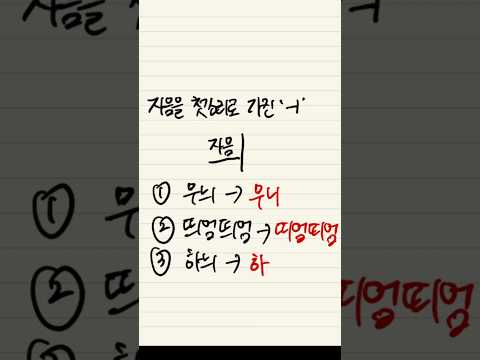 자음을 첫소리로 가진 'ㅢ'
자음ㅢ
① 무늬 → 무니
② 띄엄띄엄 → 띠엄띠엄
③ 하늬 → 하